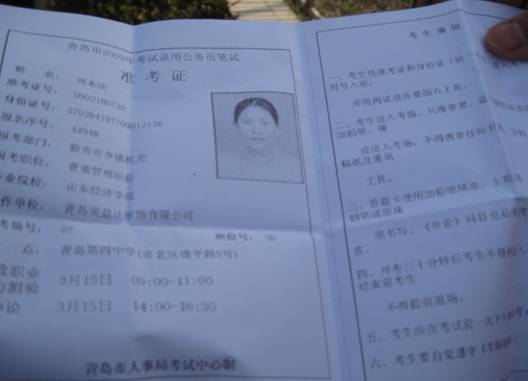 青岛市2009年考试录用公务员笔试
准考证
姓 名:
准考证号: 0902180720
身份证号:
报名序号: 44948
报考部门: 胶南市乡镇机关
报考职位: 普通管理职位
毕业院校: 山东经济学院
工作单位: 青岛 装饰有限公司
考场号: 07 座位号: 30
点: 青岛第四中学(市北区德平路5号)
政职业
力测验 3月15日 09:00-11:00
申论 3月15日 14:00-16:30
青岛市人事局考试中心制
考 生 须 知
一、考生凭准考证和身份证
对号入座,
并将两证放在桌面右上角。
二、考生进入考场,只准带黑、蓝
2B铅笔、橡
皮进入考场,不得携带任何
稿纸及通讯
工具。
三、答题卡使用2B铅笔填涂,主观
钢笔或圆珠
笔书写。《申论》科目也必须
皮。
四、开考三十分钟后考生不得入
结束前考生
不得提前退场。
五、考生应在考试前一天下午
六、考生要自觉遵守